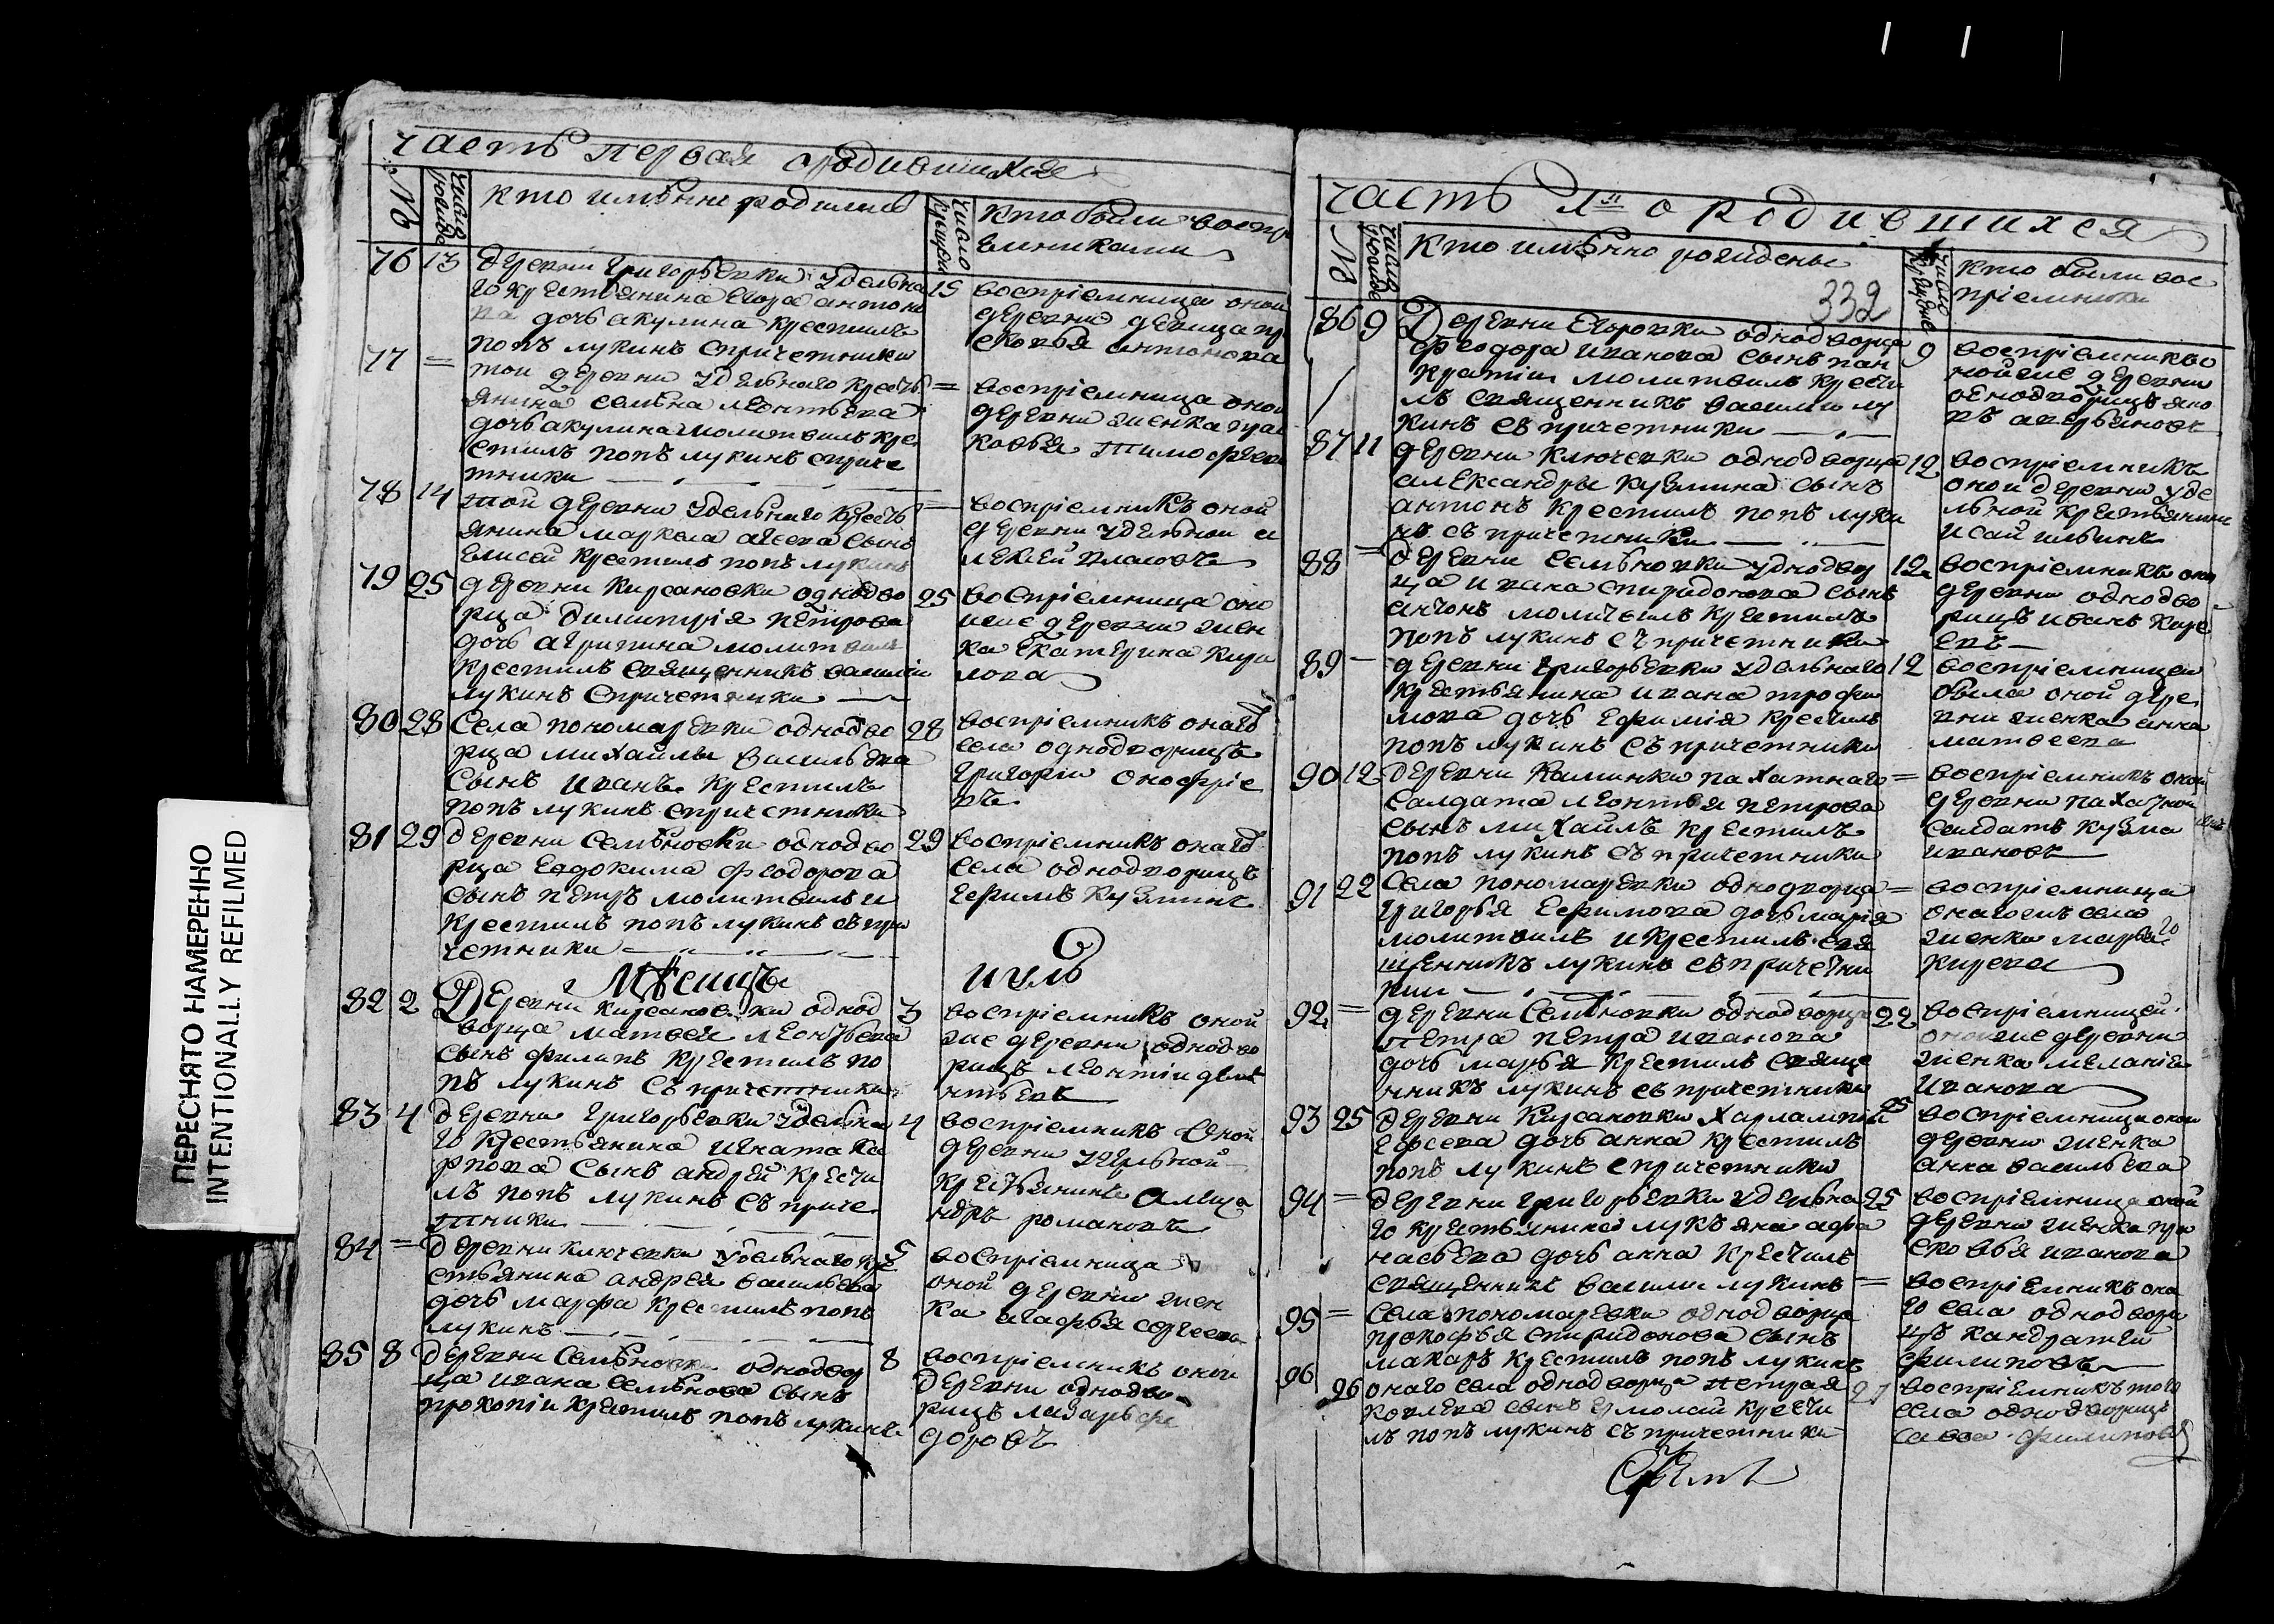 часть первая ородившихся
№
число рожде
кто имѣнно родились
число крещени
кто были воспр
емниками
76 13 деревни григорьевки удельна
го крестьянина егора антоно
ва дочь акулина крестилъ
попъ лукинъ спричетники
15 воспріемница оной
деревни девица пр
сковья антонова
77 = тои деревни удельнаго кресть
янина семѣна леонтьева
дочь акулина молитвилъ кре
стилъ попъ лукинъ сприче
тники
= воспріемница оной
деревни женка прас
ковья тимофеева
78 14 той деревни удельнаго кресть
янина маркела агеева сынъ
елисей крестилъ попъ лукинъ
= воспріемникъ оной
деревни удельной а
лексей власовъ
79 25 деревни кирсановки однодво
рца димитрія петрова
дочь агрипина молитвилъ
крестилъ священникъ василіи
лукинъ спричетники
25 воспріемница оно
иже деревни жен
ка екатерина кири
лова
80 28 села пономаревки однодво
рца михайлы васильева
сынъ иванъ крестилъ
попъ лукинъ спричетники
28 воспріемникъ онаго
села однодворецъ
григорій онофріе
въ
81 29 деревни семѣновки однодво
рца евдокима феодорова
сынъ петръ молитвилъ и
крестилъ попъ лукинъ съ при
четники
29 воспріемникъ онаго
села однодворицъ
ефимъ кузминъ
мѣсяцъ июль
82 2 деревни кирсановки однод
ворца матвея леонтьева
сынъ филипъ крестилъ по
пъ лукинъ съ причетники
3 воспріемникъ оной
же деревни однодво
рицъ леонтіи
83 4 деревни григорьевки удельна
го крестьянина игната ка
рпова сынъ андрей крести
лъ попъ лукинъ съ приче
тники
4 воспріемникъ оной
деревни удельной
крестьянинъ алекса
ндръ романовъ
84 = деревни ключевки удельнаго кре
стьянина андрея васильева
дочь марфа крестилъ попъ
лукинъ
5 воспріемница
оной деревни жен
ка агафья сергеева
85 8 деревни семѣновки однодвор
ца ивана семѣнова сынъ
прокопіи крестилъ попъ лукинъ
8 воспріемникъ оной
деревни однодво
рицъ лазарь фе
доровъ
часть 1я о родившихся
№
число рожде
кто имѣнно рождены
332
число крещение
кто были вос
пріемники
86 9 деревни егоровки однодворца
феодора иванова сынъ пан
кратіи молитвилъ крести
лъ священникъ василіи лу
кинъ съ причетники
9 воспріемникъ о
нойже деревни
однодворицъ яко
въ аверьяновъ
87 11 деревни ключевки однодворца
александры кузмина сынъ
антонъ крестилъ попъ луки
нъ съ причетники
12 воспріемникъ
оной деревни уде
льной крестьянинъ
исай ильинъ
88 = деревни семѣновки однодвор
ца ивана спиридонова сынъ
антонъ молитвилъ крестилъ
попъ лукинъ съ причетники
12 воспріемникъ оной
деревни однодво
рицъ иванъ кире
евъ
89 – деревни григорьевки удельнаго
крестьянина ивана трофи
мова дочь ефимія крестилъ
попъ лукинъ съ причетники
12 воспріемницеи
была оной дере
вни женка анна
матвеева
90 12 деревни калинки пахатнаго
салдата леонтья петрова
сынъ михайлъ крестилъ
попъ лукинъ съ причетники
= воспріемникъ оной
деревни пахатной
салдатъ кузма
ивановъ
91 22 села пономаревки однодворца
григорья ефимова дочь марія
молитвилъ и крестилъ свя
щенникъ лукинъ съ причетни
ки
= воспріемница
онагоже села
женка марья
кирева
92 = деревни семѣновки однодворца
петра петра иванова
дочь марья крестилъ свяще
нникъ лукинъ съ причетники
22 воспріемницей
онойже деревни
женка меланія
иванова
93 25 деревни кирсановки харлампія
евсева дочь анна крестилъ
попъ лукинъ спричетники
25 воспріемница оной
деревни женка
анна васильева
94 = деревни григорьевки удельна
го крестьянина лукѣяна афа
насьева дочь анна крестилъ
священникъ василіи лукинъ
25 воспріемница оной
деревни женка пра
сковья иванова
95 = села пономаревки однодворца
прокофья спиридонова сынъ
макаръ крестилъ попъ лукинъ
= воспріемникъ она
го села однодвори
цъ кандратеи
филиповъ
96 26 онаго села однодворца петра я
ковлева сынъ ермолай крести
лъ попъ лукинъ съ причетники
27 воспріемникъ того
села однодворицъ
савва филиповъ
ПЕРЕСНЯТО НАМЕРЕННО
INTENTIONALLY REFILMED